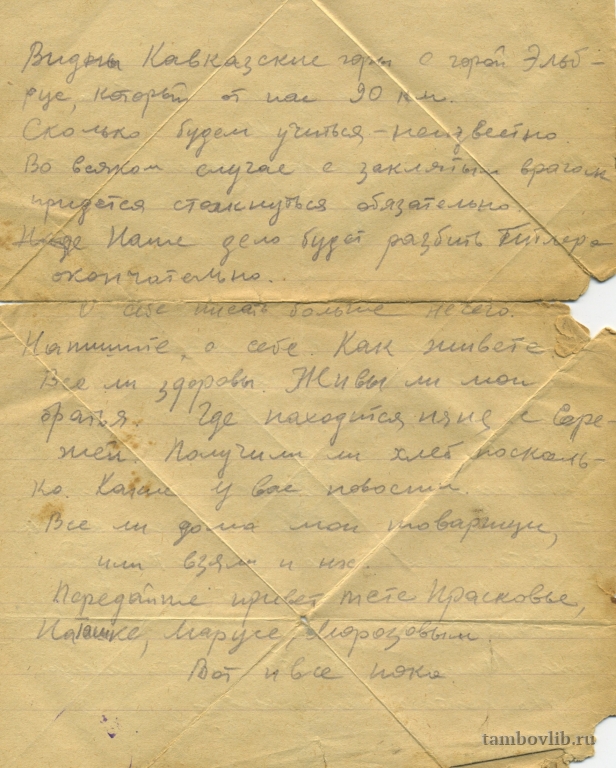 Видны Кавказские горы с горой Эльб-
рус, который от нас 90 км.
Сколько будем учиться - неизвестно
Во всяком случае с заклятым врагом
придется столкнуться обязательно.
Наше дело будет разбить Гитлера
окончательно..
О себе писать больше нечего.
Напишите, о себе. Как живете
Все ли здоровы. Живы ли мои
братья. Где находится няня с Сере-
жей. Получили ли хлеб поскаль-
ко. Какие у вас новости.
Все ли дома мои товарищи,
или взяли и их.
Передайте привет тете Прасковье,
Наташке, Марусе Морозовым.
Вот и все пока.
tambovlib.ru